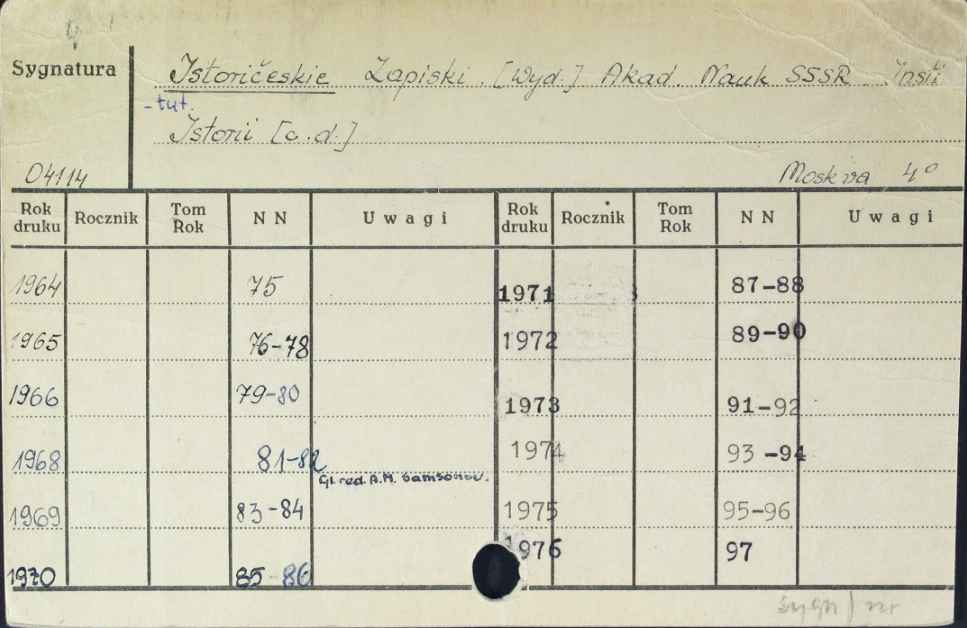 Sygnatura
Istoričeskie Zapiski. [Wyd.] Akad. Nauk SSSR. Insti
-tut.
Istorii [c.d.]
04114
Moskva 4°
Rok druku Rocznik Tom Rok NN Uwagi Rok druku Rocznik Tom Rok NN Uwagi
1964 75 1971 87-88
1965 76-78 1972 89-90
1966 79-80 1973 91-92
1968 81-82 1974 93-94
Gl. red. A.M. Samsonov.
1969 83-84 1975 95-96
1970 85-86 1976 97
sygn / nr